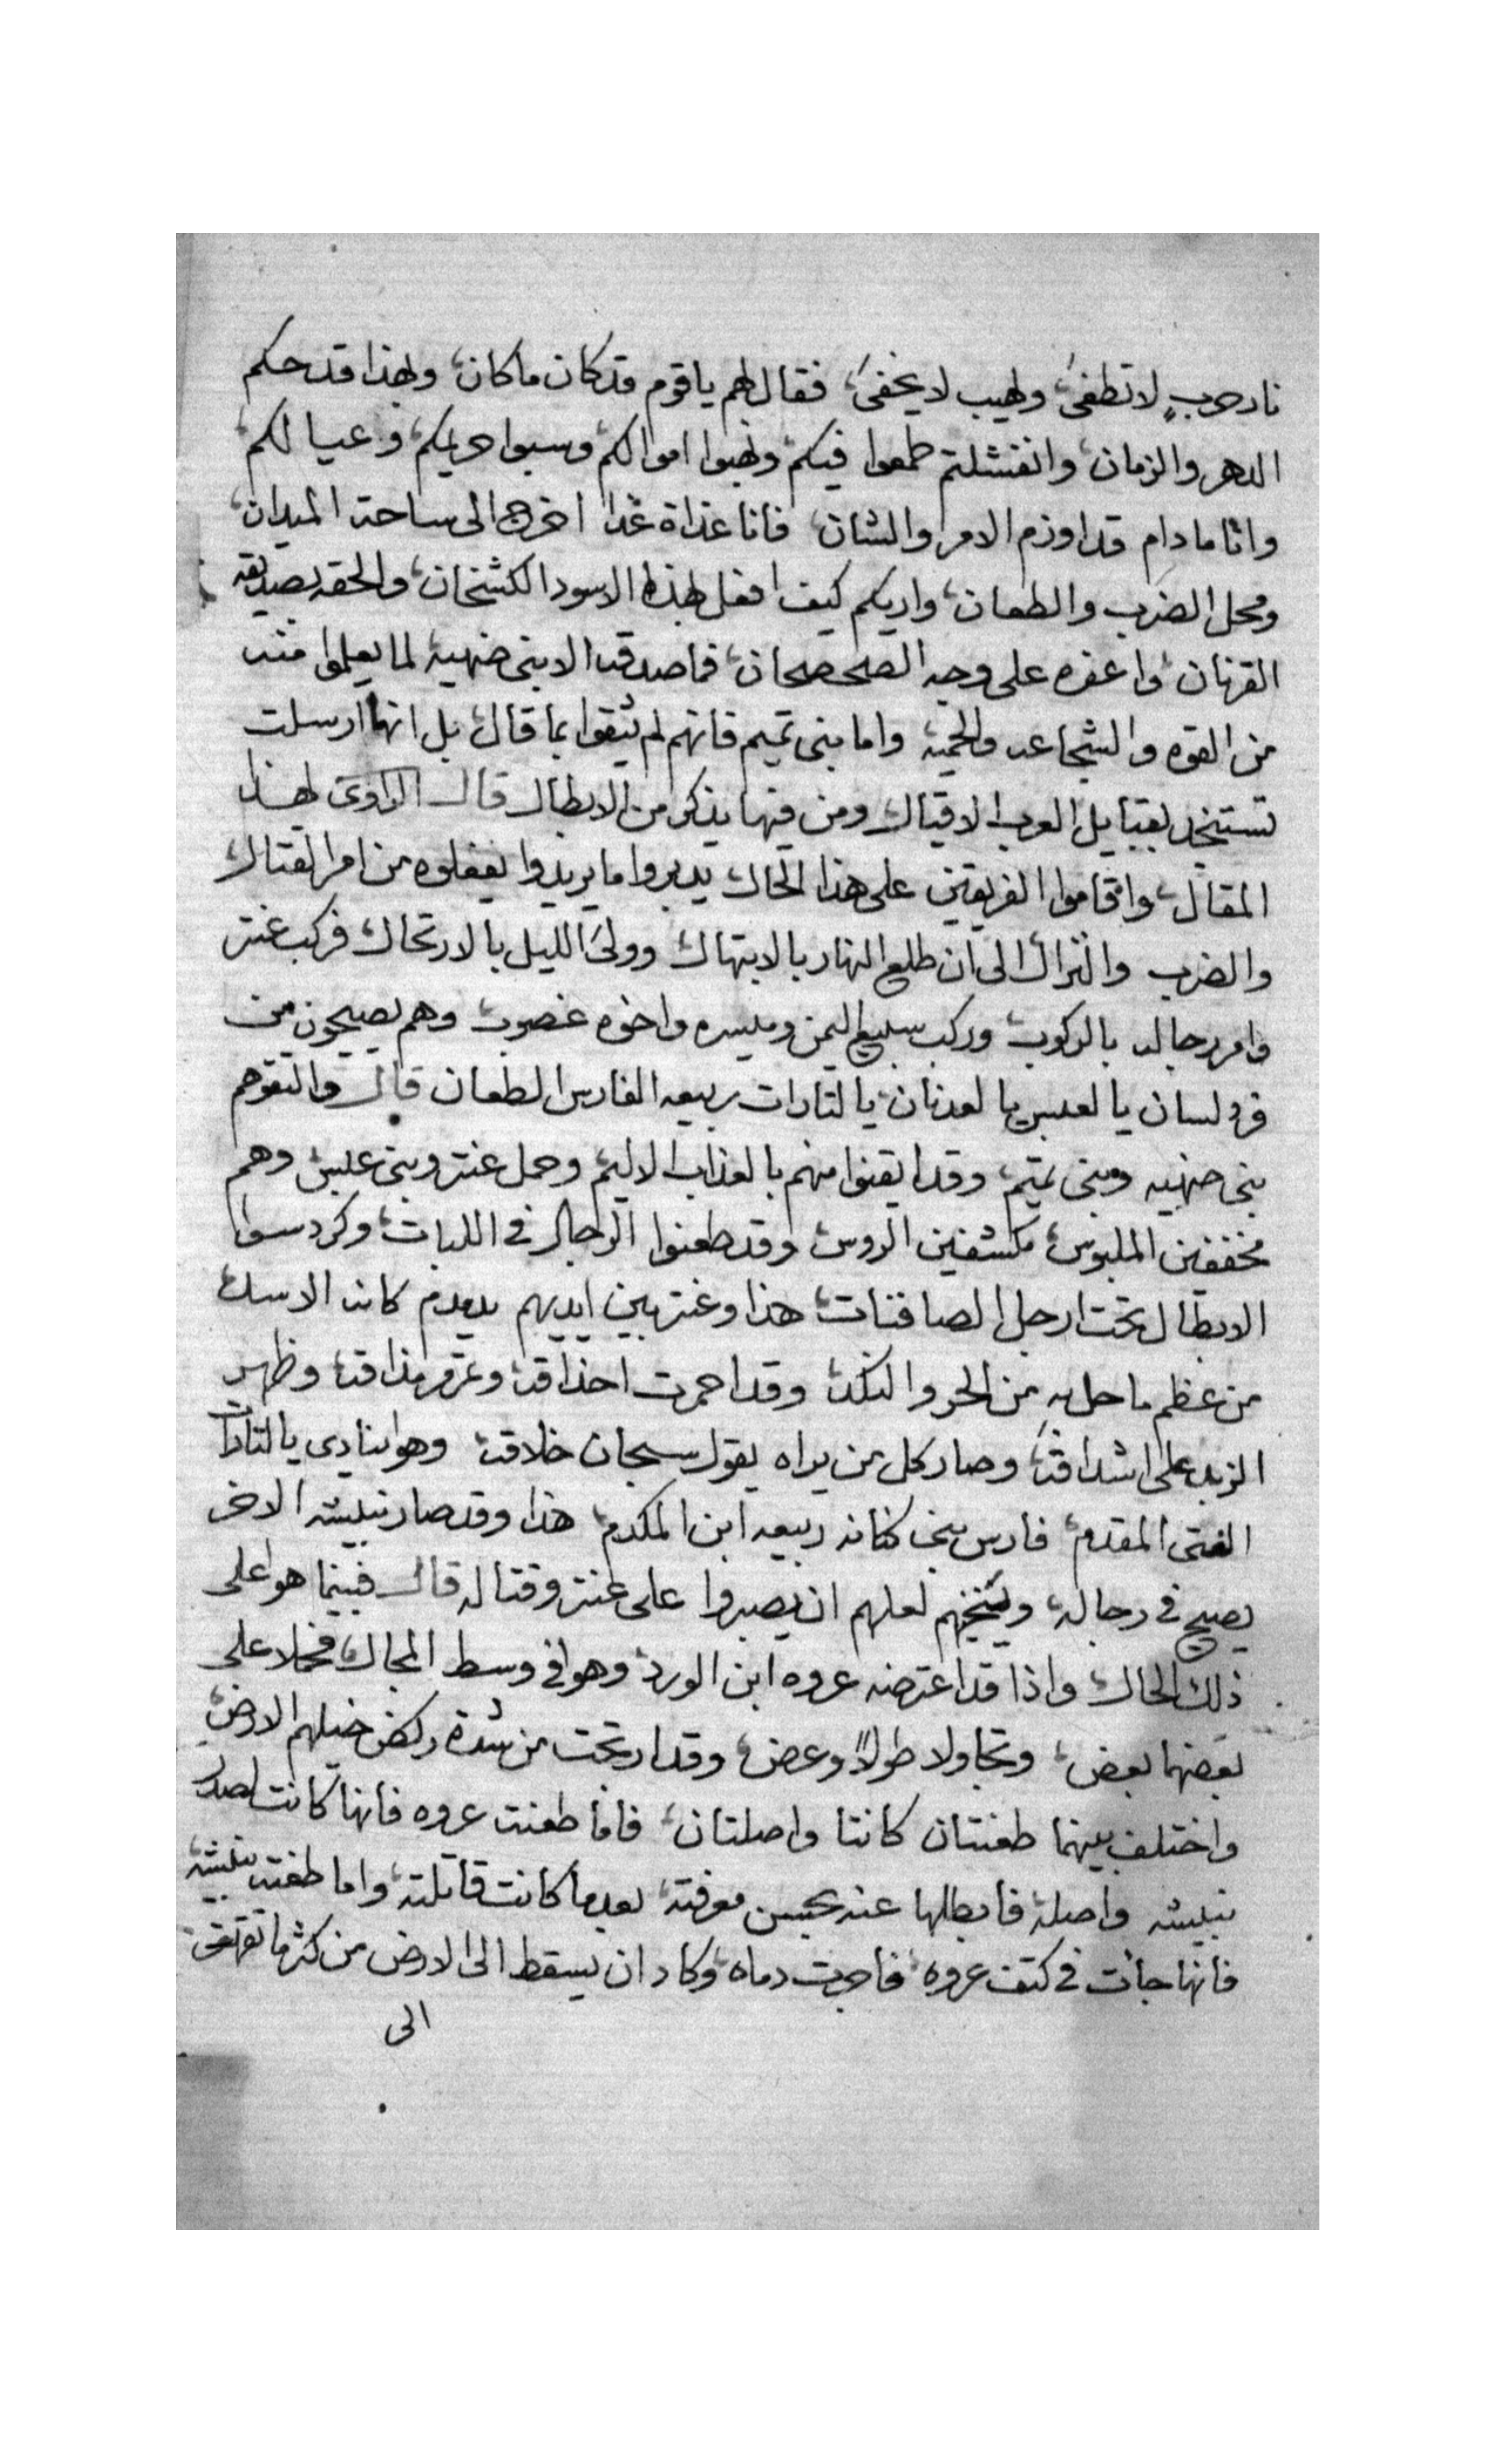 نار حربٍ لا تطفىَ، ولهيب لا يخفىَ، فقال لهم يا قوم قد كان ما كان، وبهذا قد حكم
الدهر والزمان، وان فشلتم طمعوا فيكم، ونهبوا اموالكم، وسبوا حريمكم، وعيالكم،
وانا ما دام قد اوزم الامر والشان، فانا غذاة غدا اخرج الى ساحة الميدان،
ومحل الضرب والطعان، واريكم كيف افعل بهذا الاسود الكشخان، والحقه بصديقه
القرنان، واعفره على وجه الصحصحان، فما صدقه الا بنى ضهيه لما يعلموا منه
من القوه والشجاعه والحميه، واما بنى تميم فانهم لم يثقوا بما قال، بل انها ارسلت
تستنجد بقبايل العرب الاقيال، ومن فيها يذكر من الابطال قال الراوى لهذا
المقال، واقاموا الفريقين على هذا الحال، يدبروا ما يريدوا يفعلوه من امر القتال،
والضرب والنزال، الى ان طلع النهار بالابتهال، وولىَ الليل بالارتحال، فركب عنتر
وامر رجاله بالركوب، وركب سبيع اليمن وميسره واخوه غضوب، وهم يصيحون من
فرد لسان يا لعبس يا لعدنان، يا لثارات ربيعه الفارس الطعان قال والتقوهم
بنى ضهيه وبنى تميم، وقد ايقنوا منهم بالعذاب الاليم، وحمل عنتر وبنى عبس، وهم
مخففين الملبوس، مكشفين الروس، وقد طعنوا الرجال فى اللبات، وكردسوا
الابطال تحت ارجل الصافنات، هذا وعنتر بين ايديهم يدمدم كانه الاسد
من عظم ما حل به من الحر والنكد، وقد احمرت احذاقه، وتمرر مذاقه، وظهر
الزبد على اشداقه، وصار كل من يراه يقول سبحان خلاقه، وهو ينادى يا لثارات
الفتى المقدم، فارس بنى كنانه ربيعه ابن المكدم، هذا وقد صار نبيشه الاخر
يصيح فى رجاله، وينخيهم لعلهم ان يصبروا على عنتر وقتاله قال فبينما هو على
ذلك الحال، واذا قد اعترضه عروه ابن الورد، وهو فى وسط المجال، فحملا على
بعضهما بعض، وتجاولا طولاً وعرض، وقد ارتجت من شدة ركض خيلهم الارض،
واختلف بينهما طعنتان كانتا واصلتان، فاما طعنت عروه فانها كانت لصدر
نبيشه واصلة، فابطلها عنه بحسن معرفته، بعدما كانت قاتلته، واما طعنت نبيشه،
فانها جأت فى كتف عروه، فاجرت دماه، وكاد ان يسقط الى الارض من كثرما تقهقر
الى